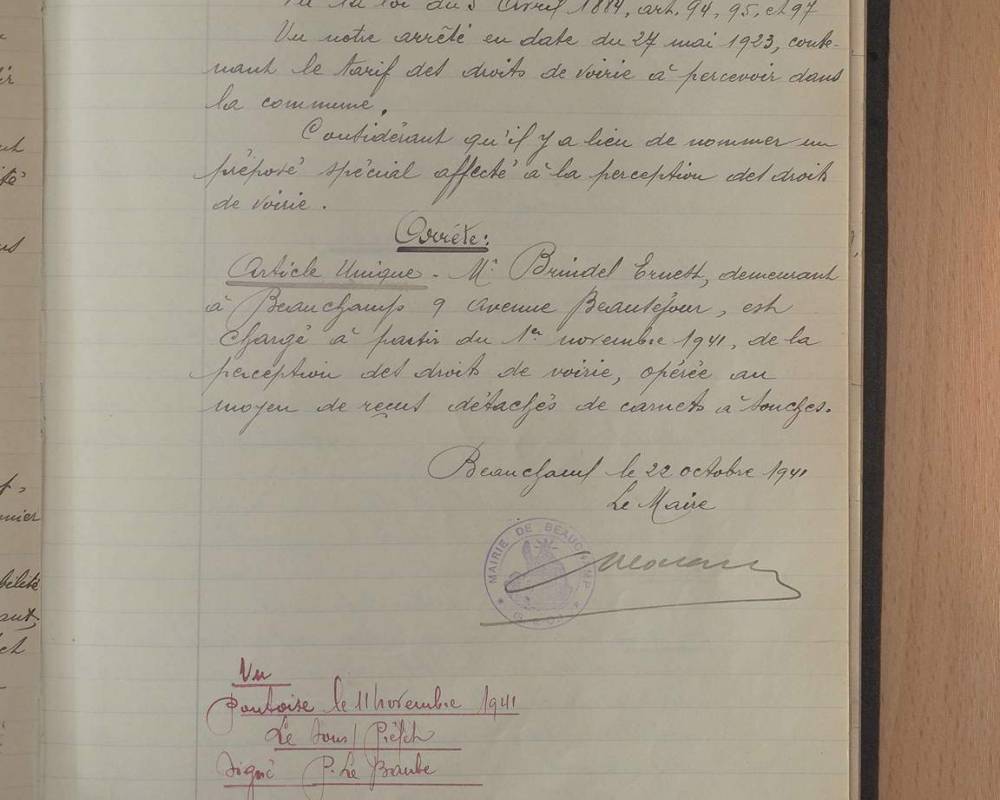 Vu la loi du 5 Avril 1884, art. 94, 95, et 97
Vu notre arrêté en date du 27 mai 1923, conte-
nant le tarif des droits de voirie à percevoir dans
la commune.
Considérant qu'il y a lieu de nommer un
préposé spécial affecté à la perception des droits
de voirie.
Arrête:
Article Unique. Mr Brindel Ernest, demeurant
à Beauchamp 9 Avenue Beauséjour, est
chargé à partir du 1er novembre 1941, de la
perception des droits de voirie, opérée au
moyen de reçus détachés de carnets à souches.
Beauchamp le 22 octobre 1941
Le Maire
MAIRIE DE BEAUCHAMP
Vu
Pontoise le 11 novembre 1941
Le Sous/Préfet
Signé P. Le Baube